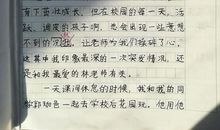 有下茁壮成长，但在校园的每一天，活
跃、调皮的孩子啊，总会出现一些意想
不到的，让老师为我们操碎了心，
这其中我印象最深的一次突发情况，还
是和我最爱的林老师有关。
一天课间休息的时候，我和我的同
学郭一起去学校后花园玩，他用他